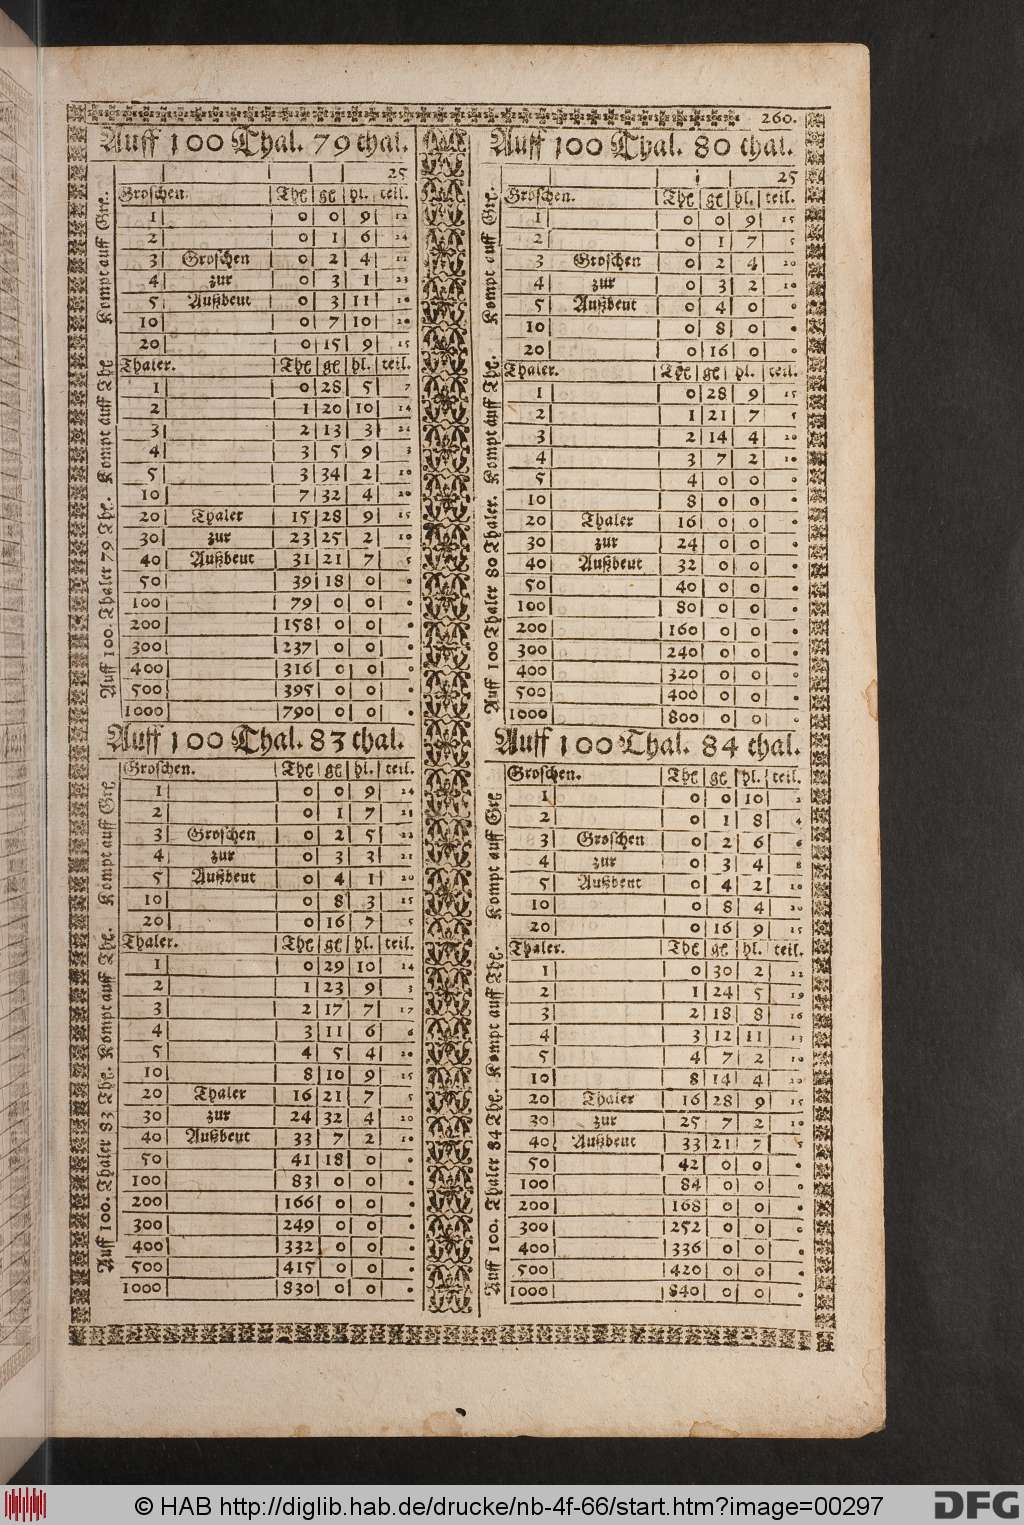 260.
Auff 100 Thal. 79 thal.
25
Groschen. Thl gl hl. teil.
1 0 0 9 12
2 0 1 6 24
3 Groschen 0 2 4 11
4 zur 0 3 1 23
5 Außbeut 0 3 11 10
10 0 7 10 20
20 0 15 9 15
Thaler. Thl gl hl. teil.
1 0 28 5 7
2 1 20 10 14
3 2 13 3 21
4 3 5 9 3
5 3 34 2 10
10 7 32 4 20
20 Thaler 15 28 9 15
30 zur 23 25 2 10
40 Außbeut 31 21 7 5
50 39 18 0 0
100 79 0 0 0
200 158 0 0 0
300 237 0 0 0
400 316 0 0 0
500 395 0 0 0
1000 790 0 0 0
Auff 100. Thaler 79 Thl. Kompt auff Thl Kompt auff Gre.
Auff 100 Thal. 80 thal.
25
Groschen. Thl gl hl. teil.
1 0 0 9 15
2 0 1 7 5
3 Groschen 0 2 4 20
4 zur 0 3 2 10
5 Außbeut 0 4 0 0
10 0 8 0 0
20 0 16 0 0
Thaler. Thl gl hl. teil.
1 0 28 9 15
2 1 21 7 5
3 2 14 4 20
4 3 7 2 10
5 4 0 0 0
10 8 0 0 0
20 Thaler 16 0 0 0
30 zur 24 0 0 0
40 Außbeut 32 0 0 0
50 40 0 0 0
100 80 0 0 0
200 160 0 0 0
300 240 0 0 0
400 320 0 0 0
500 400 0 0 0
1000 800 0 0 0
Auff 100 Thaler 80 Thaler. Kompt auff Thl. Kompt auff Gre.
Auff 100 Thal. 83 thal.
Groschen. Thl gl hl. teil.
1 0 0 9 24
2 0 1 7 23
3 Groschen 0 2 5 22
4 zur 0 3 3 21
5 Außbeut 0 4 1 20
10 0 8 3 15
20 0 16 7 5
Thaler. Thl gl hl. teil.
1 0 29 10 14
2 1 23 9 3
3 2 17 7 17
4 3 11 6 6
5 4 5 4 20
10 8 10 9 15
20 Thaler 16 21 7 5
30 zur 24 32 4 20
40 Außbeut 33 7 2 10
50 41 18 0 0
100 83 0 0 0
200 166 0 0 0
300 249 0 0 0
400 332 0 0 0
500 415 0 0 0
1000 830 0 0 0
Auff 100. Thaler 83 Thl. Kompt auff Thl. Kompt auff Gre
Auff 100 Thal. 84 thal.
Groschen. Thl gl hl. teil.
1 0 0 10 2
2 0 1 8 4
3 Groschen 0 2 6 6
4 zur 0 3 4 8
5 Außbeut 0 4 2 10
10 0 8 4 20
20 0 16 9 15
Thaler. Thl gl hl. teil.
1 0 30 2 22
2 1 24 5 19
3 2 18 8 16
4 3 12 11 13
5 4 7 2 10
10 8 14 4 20
20 Thaler 16 28 9 15
30 zur 25 7 2 10
40 Außbeut 33 21 7 5
50 42 0 0 0
100 84 0 0 0
200 168 0 0 0
300 252 0 0 0
400 336 0 0 0
500 420 0 0 0
1000 840 0 0 0
Auff 100. Thaler 84 Thl. Kompt auff Thl. Kompt auff Gre
© HAB http://diglib.hab.de/drucke/nb-4f-66/start.htm?image=00297
DFG